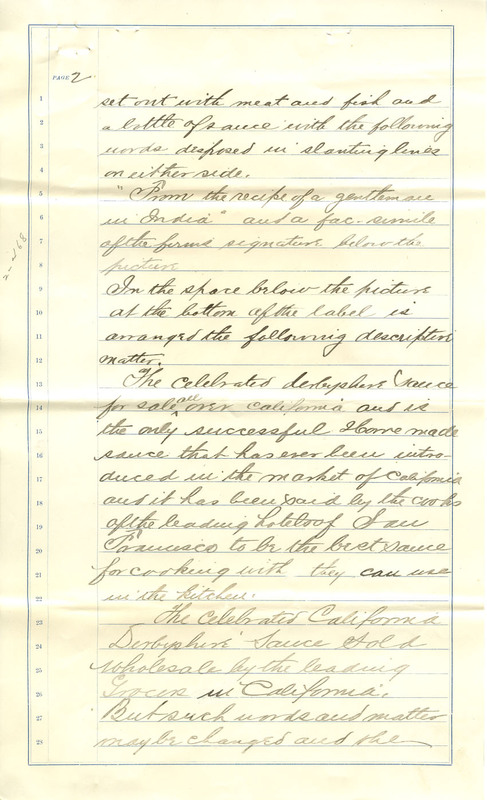 PAGE 2
1 set out with meat and fish and
2 a bottle of sauce with the following
3 words disposed in slanting lines
4 on either side.
5 "From the recipe of a gentleman
6 in India" and a fac-simile
7 of the firms signature below the
8 picture
9 In the space below the picture
10 at the bottom of the label is
11 arranged the following descriptive
12 matter.
13 "The celebrated derbyshire sauce
14 for sale all over California and is
15 the only successful Home made
16 sauce that has ever been intro-
17 duced in the market of California
18 and it has been said by the cooks
19 of the leading hotels of San
20 Francisco to be the best sauce
21 for cooking with they can use
22 in the kitchen.
23 The celebrated California
24 Derbyshire Sauce Sold
25 wholesale by the leading
26 Grocers in California.
27 But such words and matter
28 may be changed and the